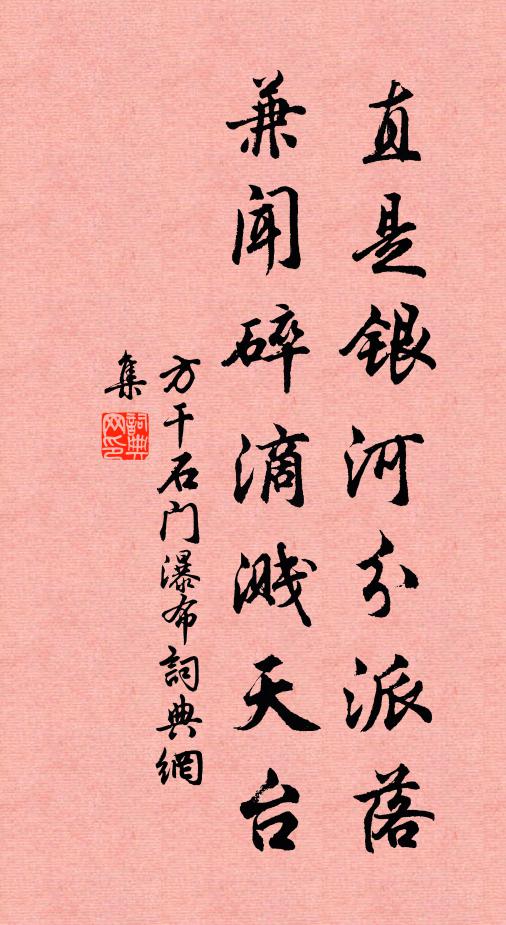 直是銀河分派落
兼聞碎滴濺天台
方干石门瀑布詞典網
集
詞典网印